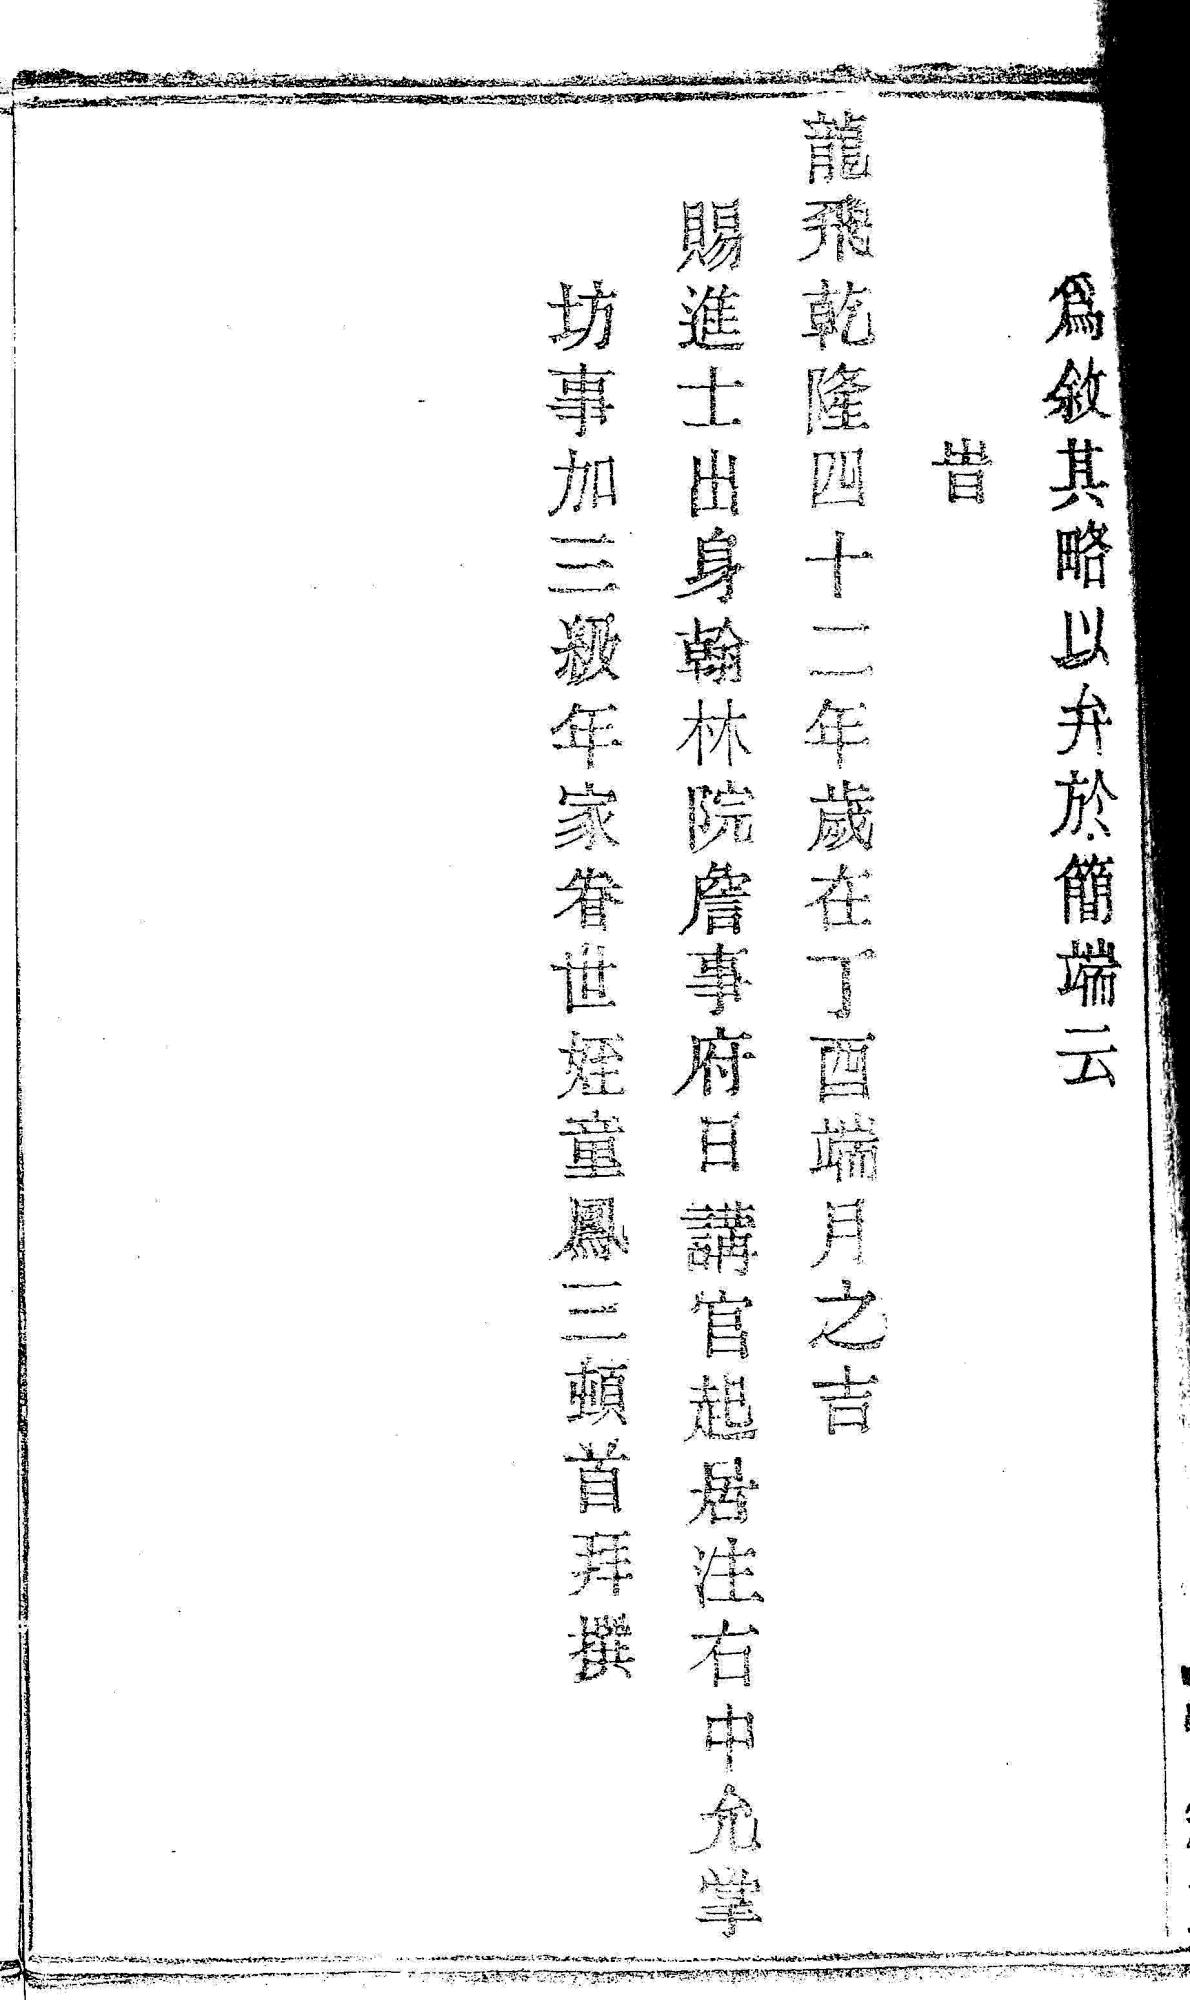 爲敘其略以弁於簡端云
旹
龍飛乾隆四十二年歲在丁酉端月之吉
賜進士出身翰林院詹事府日講官起居注右中允掌
坊事加三級年家眷世姪童鳳三頓首拜撰